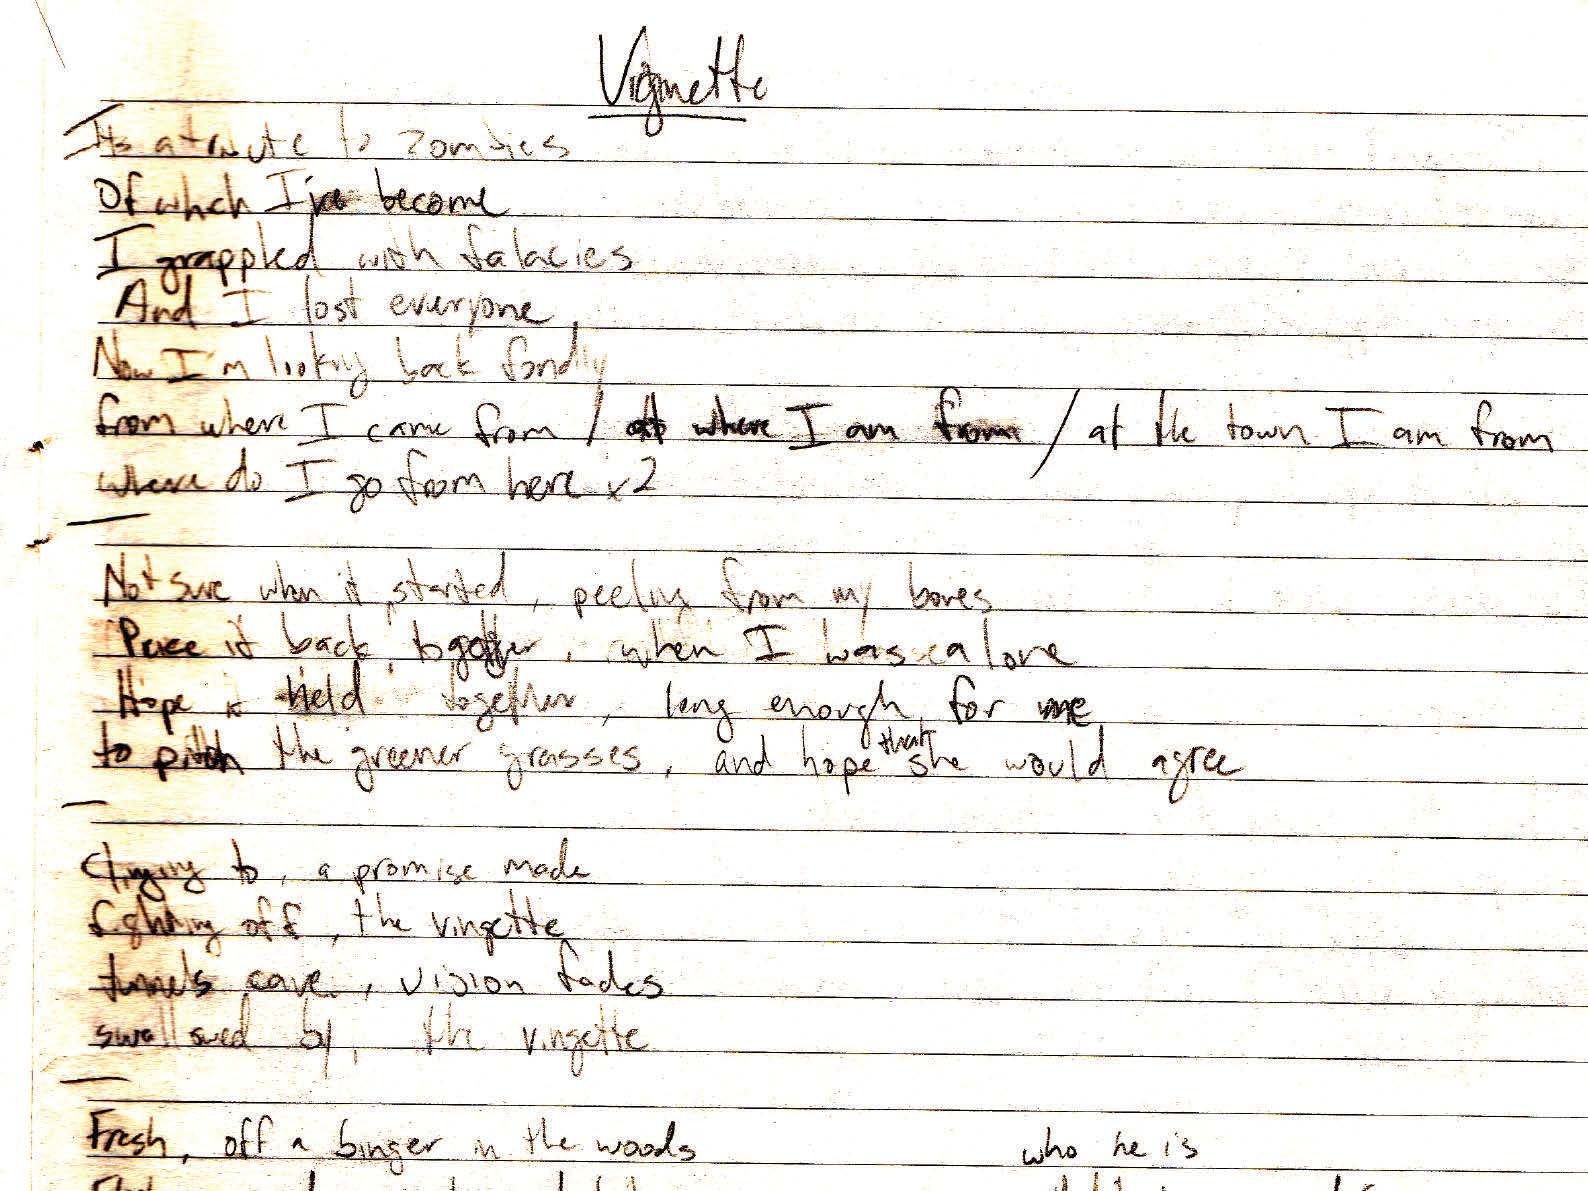 Vignette
Its a tribute to zombies
Of which I've become
I grappled with falacies
And I lost everyone
Now I'm looking back fondly
from where I came from / at where I am from / at the town I am from
where do I go from here x2
Not sure when it started, peeling from my bones
Piece it back together, when I was alone
Hope it held together, long enough for me
to pitch the greener grasses, and hope that she would agree
Clinging to, a promise made
fighting off, the vingette
tunnels cave, vision fades
swallowed by, the vingette
Fresh, off a binger in the woods
who he is